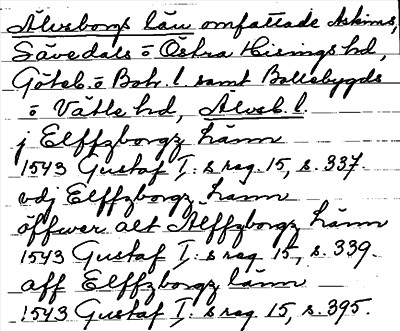 Älvsborgs län omfattade Askims,
Sävedals o Östra Hisings hd,
Göteb. o Boh. l. samt Bollebygds
o Vätle hd, Älvsb. l.
j Elffzborgz länn
1543 Gustaf I:s reg. 15, s. 337.
vdj Elffzborgz länn
öffwer alt Elffzborgz länn
1543 Gustaf I:s reg. 15, s. 339.
aff Elffzborgz länn
1543 Gustaf I:s reg. 15, s. 395.